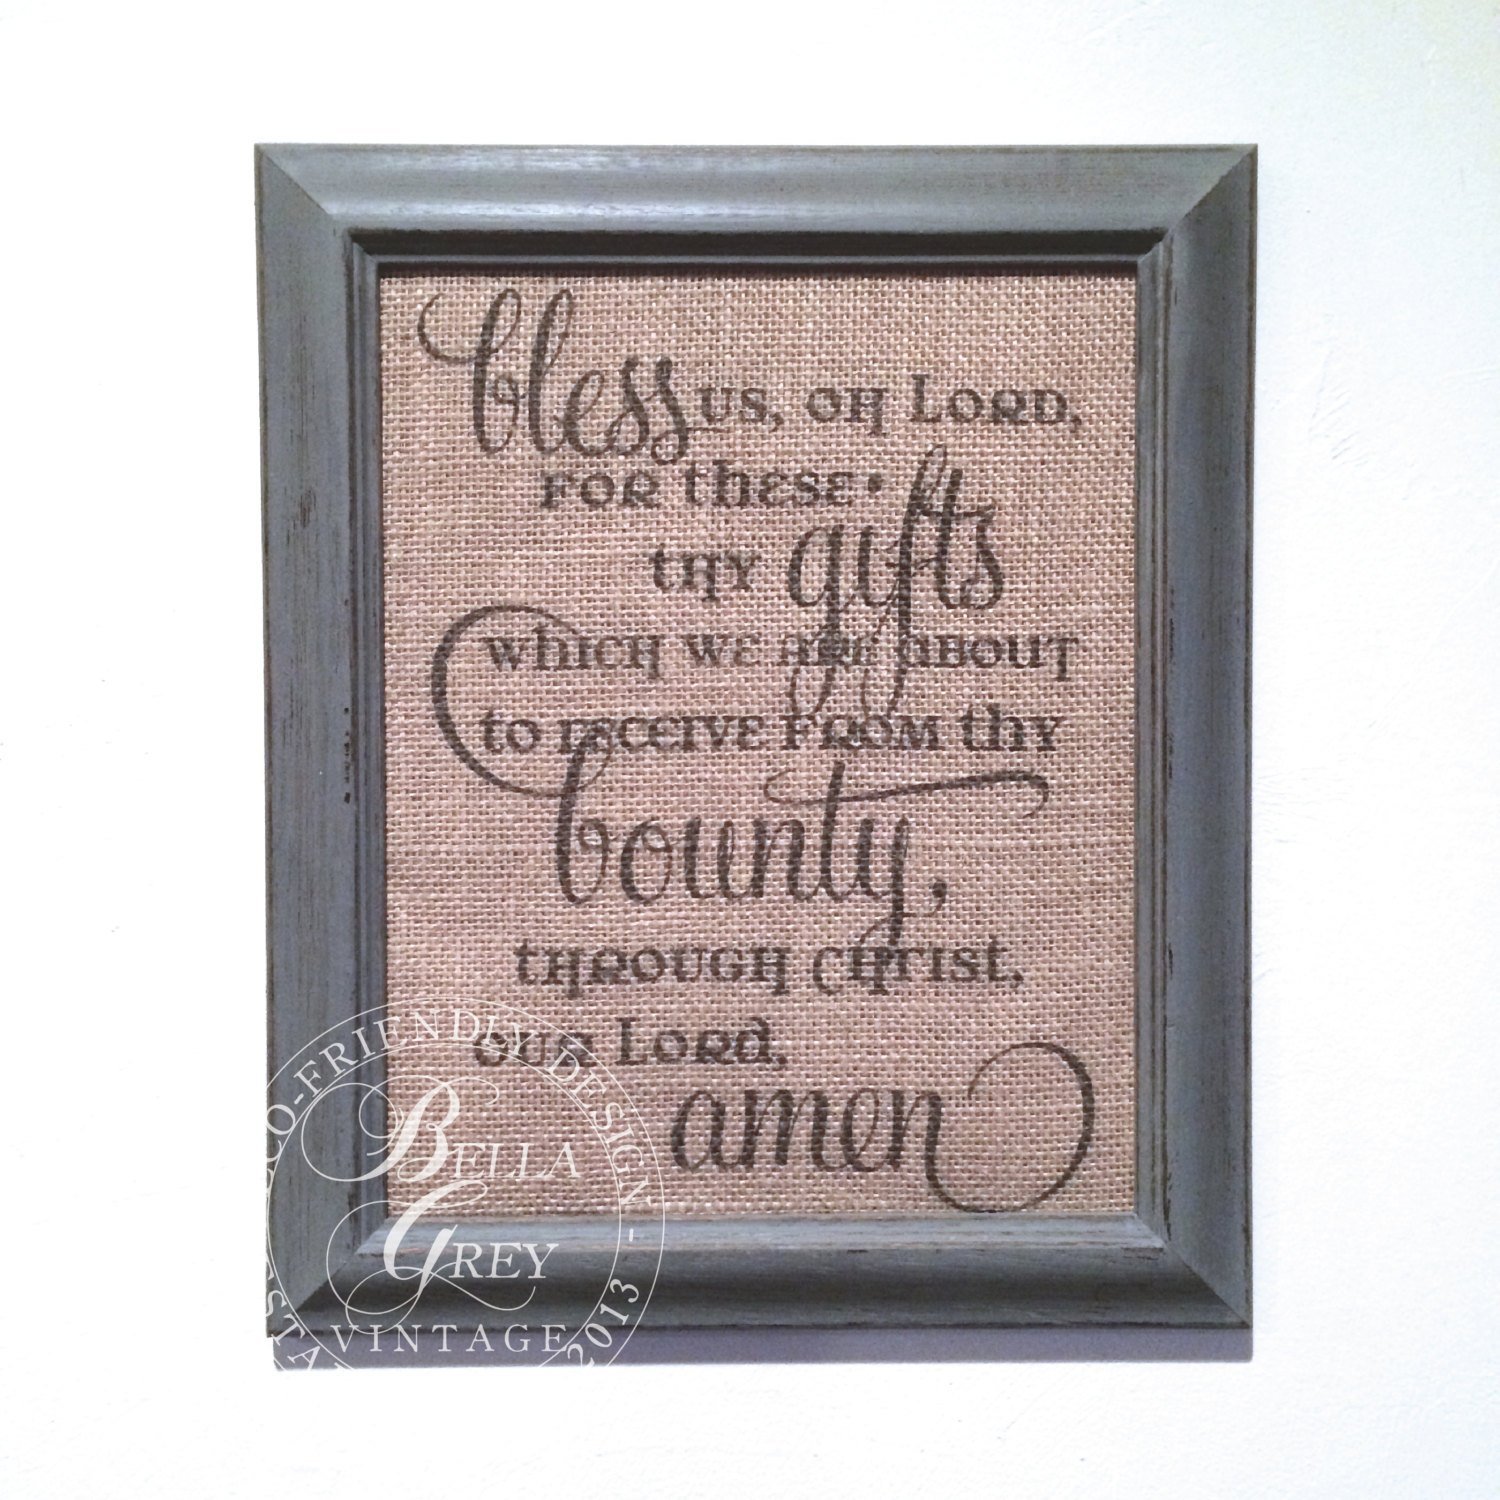 bless us, oh Lord,
for these
thy gifts
which we are about
to receive from thy
bounty,
through Christ,
our Lord,
amen
ECO-FRIENDLY DESIGN -
BELLA
GREY
VINTAGE
ESTA 2013 -